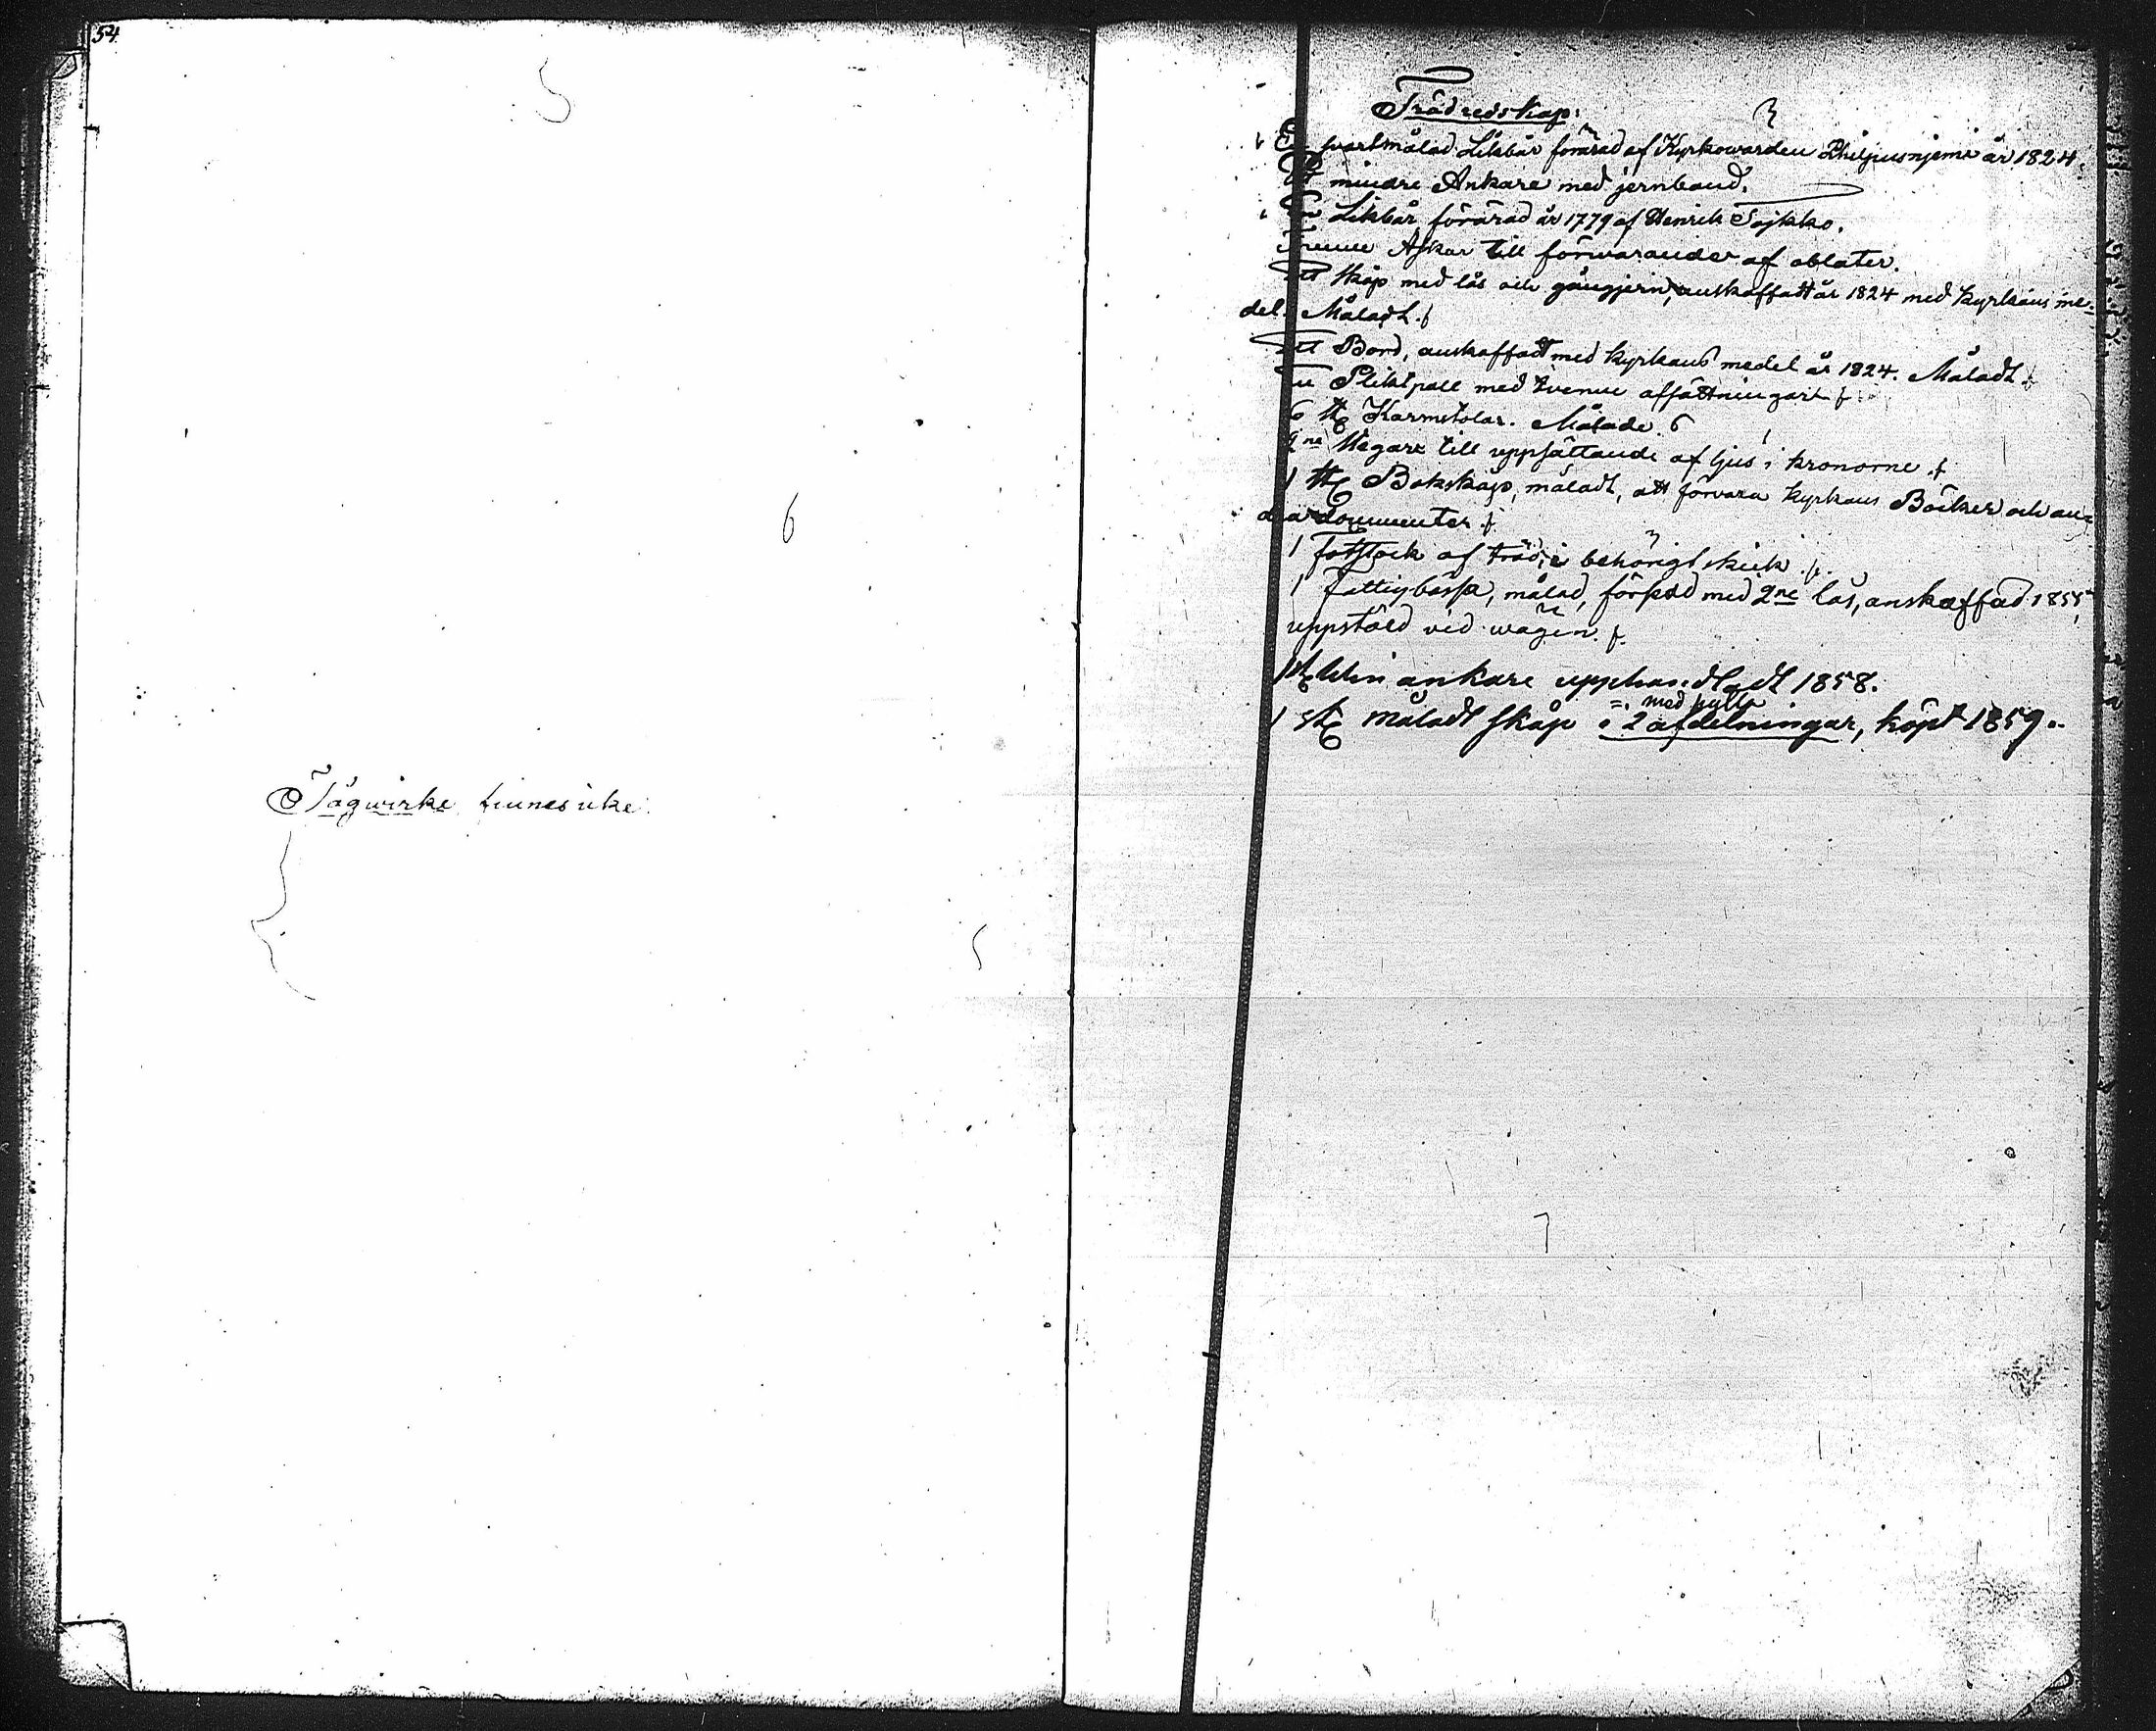 54
Tågwirke finnes icke.
Trädredskap:
En svartmålad Likbår förärad af Kyrkowärden år 1824.
Ett mindre Ankare med jernband.
En Likbår förärad år 1779 af Henrik
Trenne Askar till förwarande af oblater.
Ett skåp med lås och gångjern, anskaffatt år 1824 med kyrkans me=
del. Måladt.
Ett Bord, anskaffadt med kyrkans medel år 1824. Måladt.
En Pliktpall med tvenne afsättningar.
6 st Karmstolar. Målade. 6
2ne Stegar till uppsättande af ljus i kronorne.
1 st Bokskåp, måladt, att förvara kyrkans Böcker och an=
dra documenter.
1 fotstock af träd, i behörigt skick.
1 Fattigbössa, målad, försedd med 2ne lås, anskaffad 1855,
uppstäld vid wägen.
1 st Win ankare upphandladt 1858.
1 st måladt skåp i 2 afdelningar, köpt 1859.